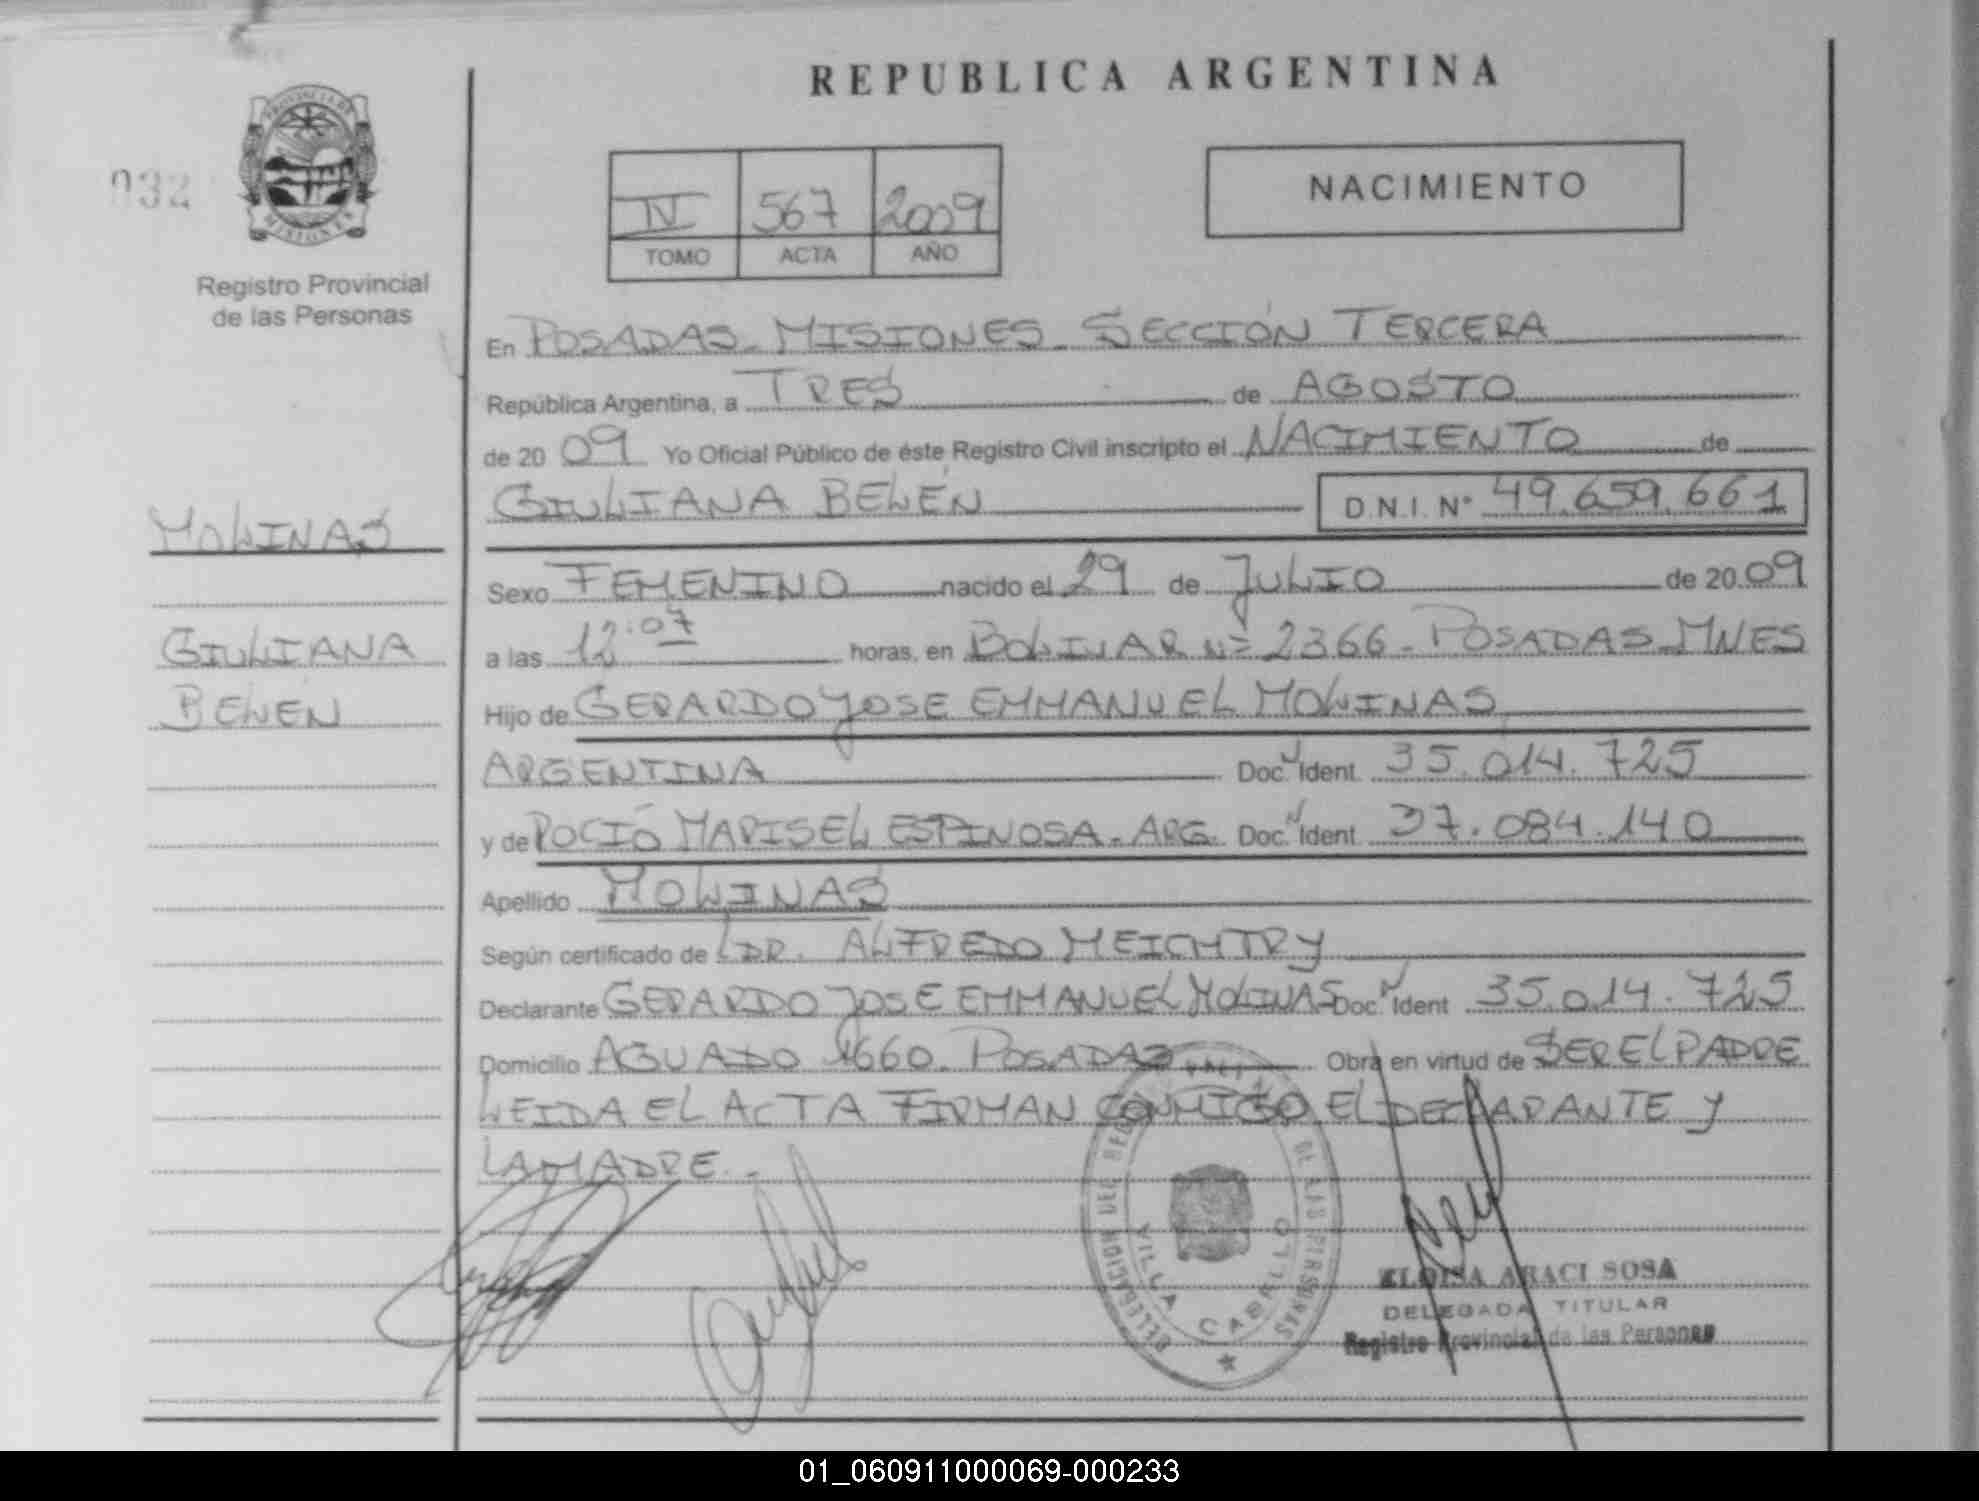 REPUBLICA ARGENTINA
032
PROVINCIA DE
MISIONES
Registro Provincial
de las Personas
IV 567 2009
TOMO ACTA AÑO
NACIMIENTO
En POSADAS - MISIONES - SECCIÓN TERCERA
República Argentina, a TRES de AGOSTO
de 20 09 Yo Oficial Público de éste Registro Civil inscripto el NACIMIENTO de
GIULIANA BELÉN D.N.I. N° 49.659.661
MOLINAS
GIULIANA
BELÉN
Sexo FEMENINO nacido el 29 de JULIO de 20 09
a las 12:07 horas, en BOLIVAR Nº 2366 - POSADAS - MNES
Hijo de GERARDO JOSE EMMANUEL MOLINAS
ARGENTINA Doc. Ident 35.014.725
y de ROCIÓ MARISEL ESPINOSA - ARG. Doc. Ident 37.084.140
Apellido MOLINAS
Según certificado de DR. ALFREDO MEICHTRY
Declarante GERARDO JOSE EMMANUEL MOLINAS Doc. Ident 35.014.725
Domicilio AGUADO 1660 - POSADAS Obra en virtud de SER EL PADRE
LEIDA EL ACTA FIRMAN CONMIGO EL DECLARANTE Y
LA MADRE.-
DELEGACION DEL DE LAS PERSONAS
VILLA CABELLO
ELOISA ARACI SOSA
DELEGADA TITULAR
Registro Provincial de las Personas
01_060911000069-000233